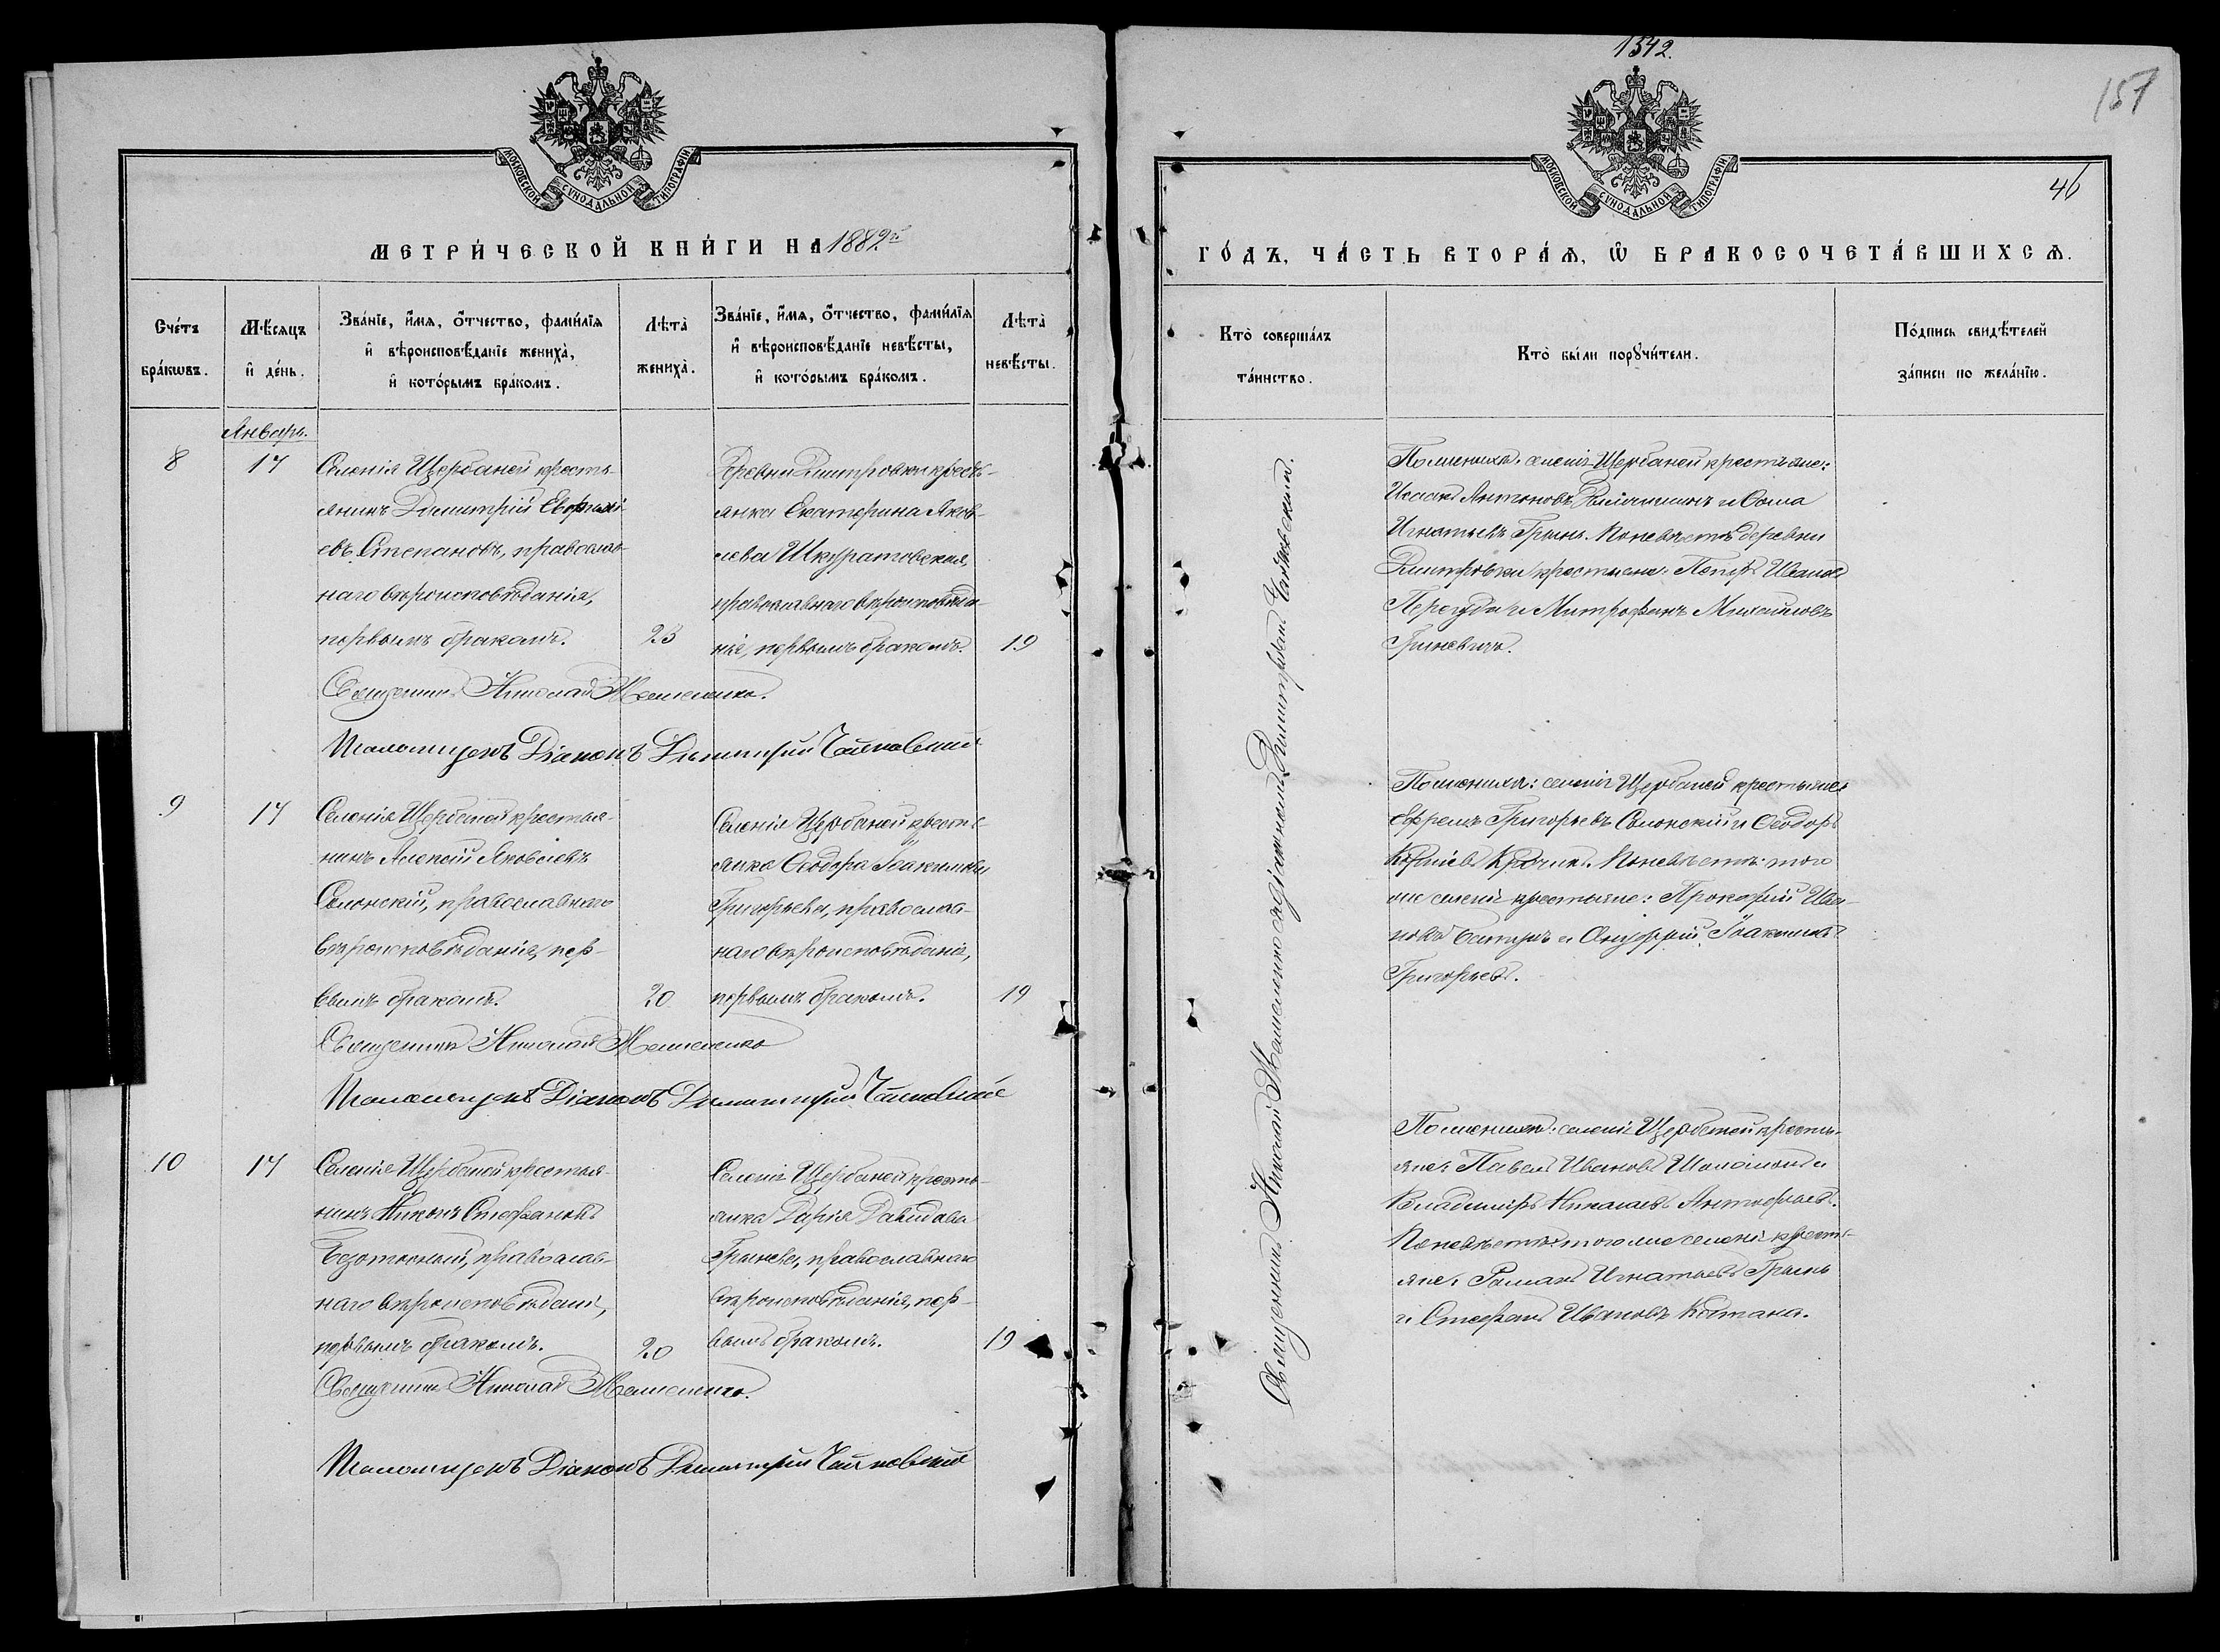 1342.
157
46
МОСКОВСКОЙ СѴНОДАЛЬНОЙ ТИПОГРАФІИ
МЕТРИ́ЧЕСКОЙ КНИ́ГИ НА 1889й
Сче́тъ бра́кѡвъ.
Мѣ́сяцъ и҆ де́нь.
Зва́нїе, и҆́мѧ, о҆́тчество, фами́лїѧ
и҆ вѣроисповѣ́данїе жениха̀,
и҆ кото́рымъ бра́комъ.
Лѣта̀ жениха̀.
Зва́нїе, и҆́мѧ, о҆́тчество, фами́лїѧ
и҆ вѣроисповѣ́данїе невѣ́сты,
и҆ кото́рымъ бра́комъ.
Лѣта̀ невѣ́сты.
Январь.
8
17
Селенія Щербаней кресть-
янинъ Димитрій
евъ Степановъ, православ-
наго вѣроисповѣданія,
первымъ бракомъ.
23
Деревни Дмитровки кресть-
янка Екатерина Яков-
лева Шкуратовская,
православнаго вѣроисповѣда-
нія, первымъ бракомъ.
19
Священникъ Николай
Псаломщикъ Діаконъ Димитрій Чайковскій
9
17
Селенія Щербаней крестья-
нинъ Алексій Яковлевъ
Селонскій, православнаго
вѣроисповѣданія, пер-
вымъ бракомъ.
20
Селенія Щербаней кресть-
янка Ѳеодора Іоакимова
Григорьева, православ-
наго вѣроисповѣданія,
первымъ бракомъ.
19
Священникъ Николай
Псаломщикъ Діаконъ Димитрій Чайковскій
10
17
Селенія Щербаней крестья-
нинъ Никонъ Стефановъ
православ-
наго вѣроисповѣданія,
первымъ бракомъ.
20
Селенія Щербаней кресть-
янка Дарія Давидова
Гринева, православнаго
вѣроисповѣданія, пер-
вымъ бракомъ.
19
Священникъ Николай
Псаломщикъ Діаконъ Димитрій Чайковскій
МОСКОВСКОЙ СѴНОДАЛЬНОЙ ТИПОГРАФІИ
ГО́ДЪ, ЧА́СТЬ ВТОРА́Ѧ, Ѡ҆ БРАКОСОЧЕТА́ВШИХСѦ.
Кто̀ соверша́лъ та́инство.
Кто̀ бы́ли порꙋчи́тели.
По́дпись свидѣ́телей за́писи по жела́нїю.
Священникъ Николай съ діакономъ Димитріемъ Чайковскимъ.
По женихѣ: селенія Щербаней крестьяне:
Исаакъ Антоновъ и Ѳома
Игнатьевъ Гринь. По невѣстѣ: деревни
Дмитровки крестьяне: Петръ Ивановъ
Перегуда и Митрофанъ Михайловъ
Гриневичъ.
По женихѣ: селенія Щербаней крестьяне:
Ефремъ Григорьевъ Селонскій и Ѳеодоръ
По невѣстѣ: того
же селенія крестьяне: Прокофій Ива-
новъ и Онуфрій Іоакимовъ
Григорьевъ.
По женихѣ: селенія Щербаней кресть-
яне: Павелъ Ивановъ и
Владиміръ Николаевъ
По невѣстѣ: того же селенія кресть-
яне: Романъ Игнатьевъ Гринь
и Стефанъ Ивановъ